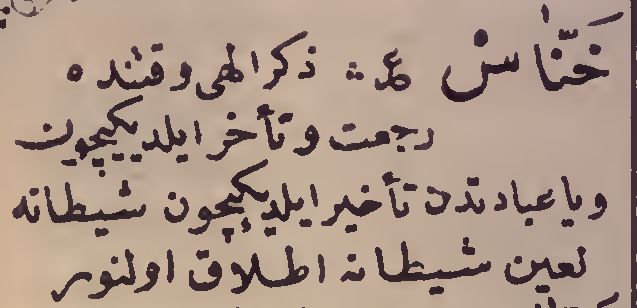 خَنّاسْ ع ذكر الهى وقتنده
رجعت و تأخر ايلديكيچون
ويا عبادتدن تأخير ايلديكيچون شيطانه
لعين شيطانه اطلاق اولنور